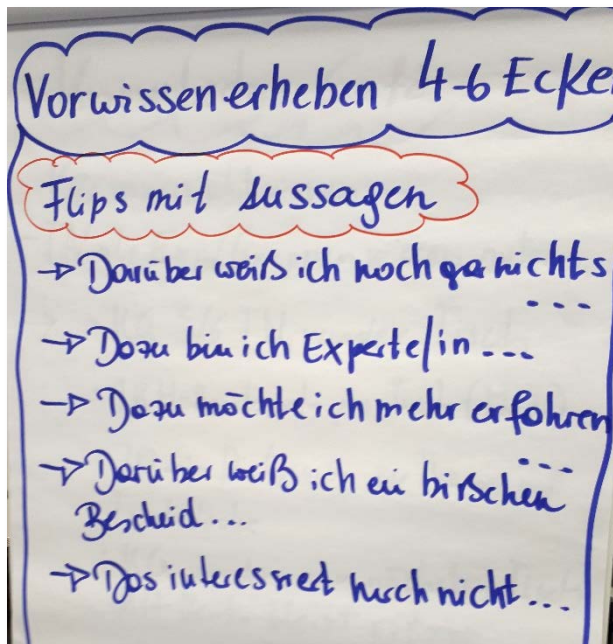 Vorwissen erheben 4-6 Ecke
Flips mit Aussagen
→ Darüber weiß ich noch gar nichts
...
→ Dazu bin ich Experte/in ...
→ Dazu möchte ich mehr erfahren
...
→ Darüber weiß ich ein bißchen
Bescheid...
→ Das interessiert mich nicht...